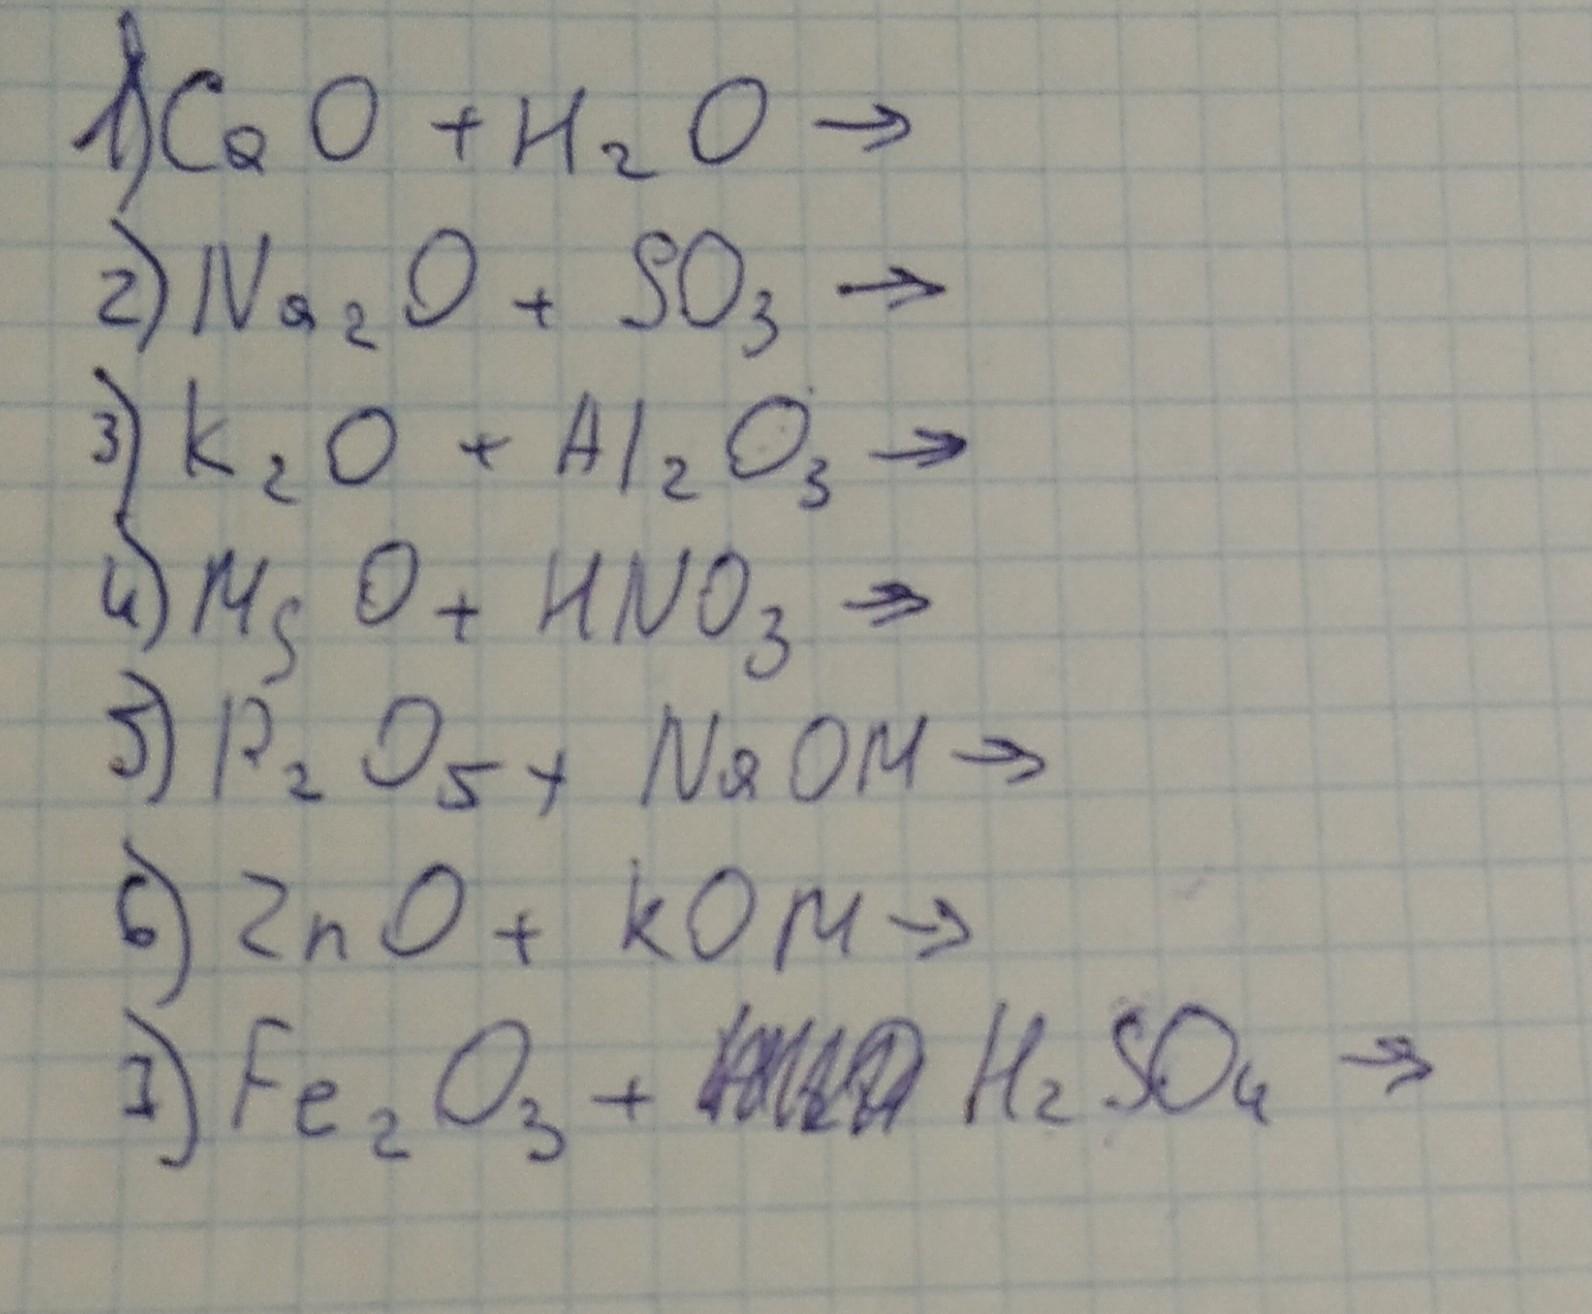 1) CaO + H₂O →
2) Na₂O + SO₃ →
3) K₂O + Al₂O₃ →
4) MgO + HNO₃ →
5) P₂O₅ + NaOH →
6) ZnO + KOH →
7) Fe₂O₃ + H₂SO₄ →